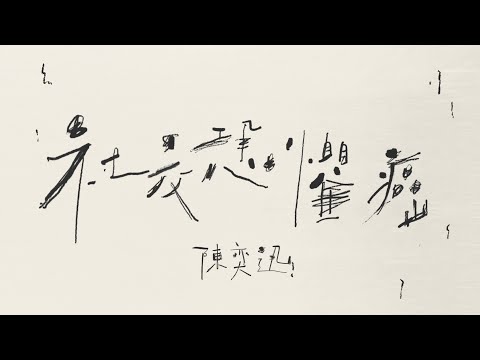 社交恐懼癌
陳奕迅